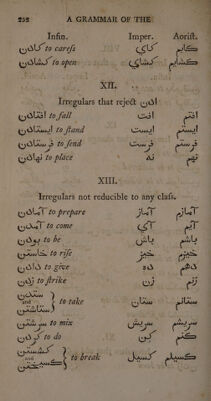 232 A GRAMMAR OF THE
Infin. Imper. Aorist.
to caress
کشادن to open کشای کشایم
XII.
Irregulars that reject ادن
افتادن to fall افت افتم
ایستادن to stand ایست ایستم
فرستادن to send فرست فرستم
نهادن to place نه نهم
XIII.
Irregulars not reducible to any class.
to prepare
آمدن to come آی آیم
بودن to be باش باشم
خاستن to rise خیز خیزم
دادن to give ده دهم
زدن to strike زن زنم
ستدن and ستاندن to take ستان ستانم
سرشتن to mix
کردن to do کن کنم
to break